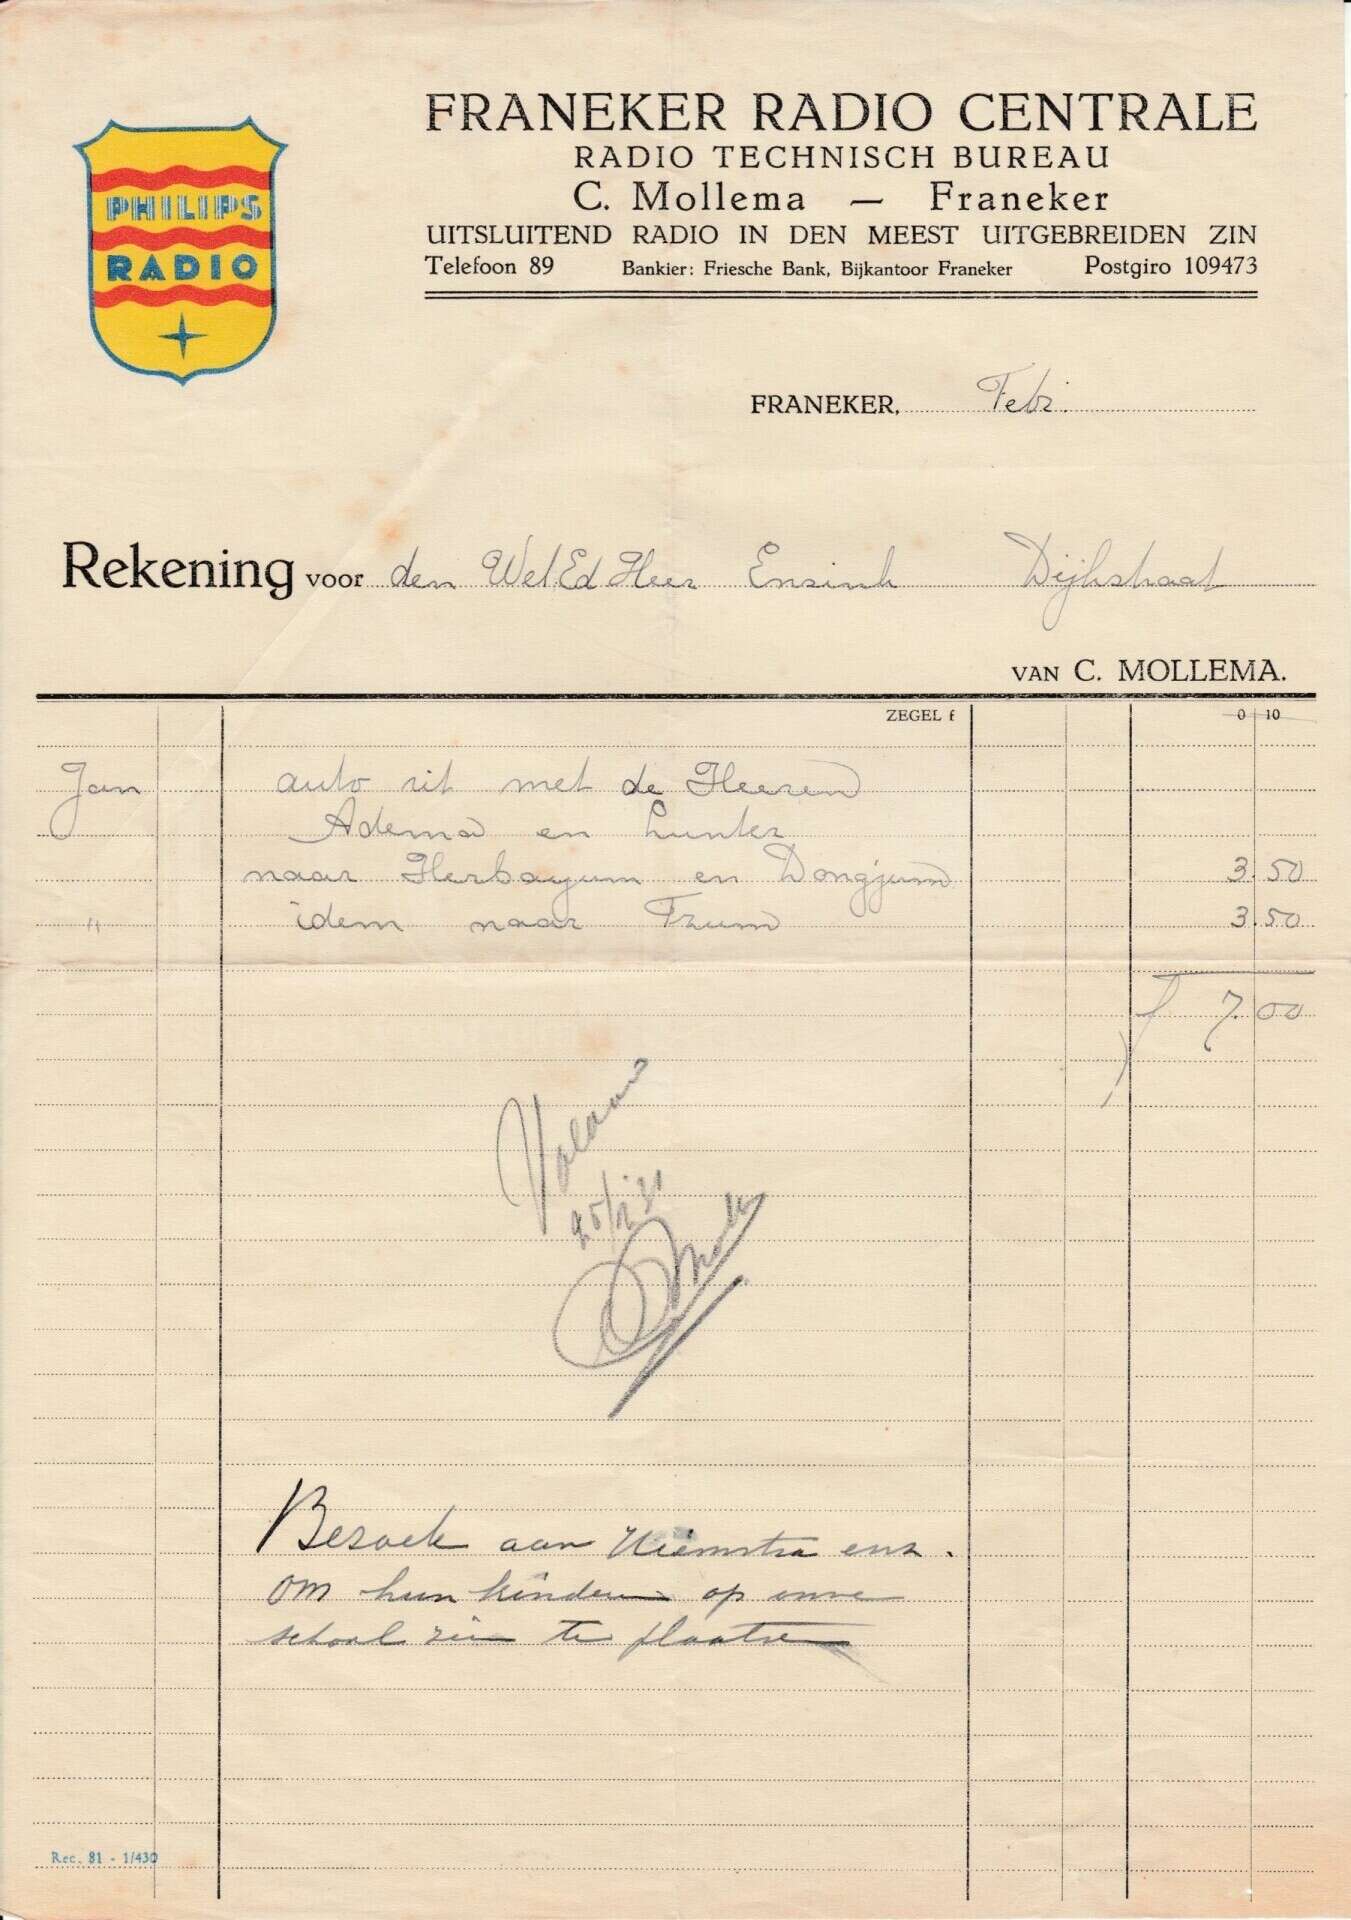 PHILIPS
RADIO
FRANEKER RADIO CENTRALE
RADIO TECHNISCH BUREAU
C. Mollema — Franeker
UITSLUITEND RADIO IN DEN MEEST UITGEBREIDEN ZIN
Telefoon 89 Bankier: Friesche Bank, Bijkantoor Franeker Postgiro 109473
FRANEKER, Febr.
Rekening voor den Wel.Ed Heer Ensink Dijkstraat
VAN C. MOLLEMA.
ZEGEL f 0 10
Jan auto rit met de Heeren
Adema en Lunter
naar Herbayum en Dongjum 3.50
" idem naar Tzum 3.50
f 7.00
Voldaan
25/2 31
Bezoek aan Hiemstra enz.
om hun kinderen op onze
school zien te plaatsen
Rec. 81 - 1/430